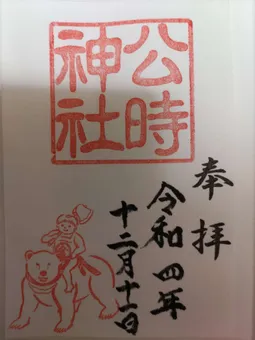 奉拝
公時
神社
令和四年
十二月十一日